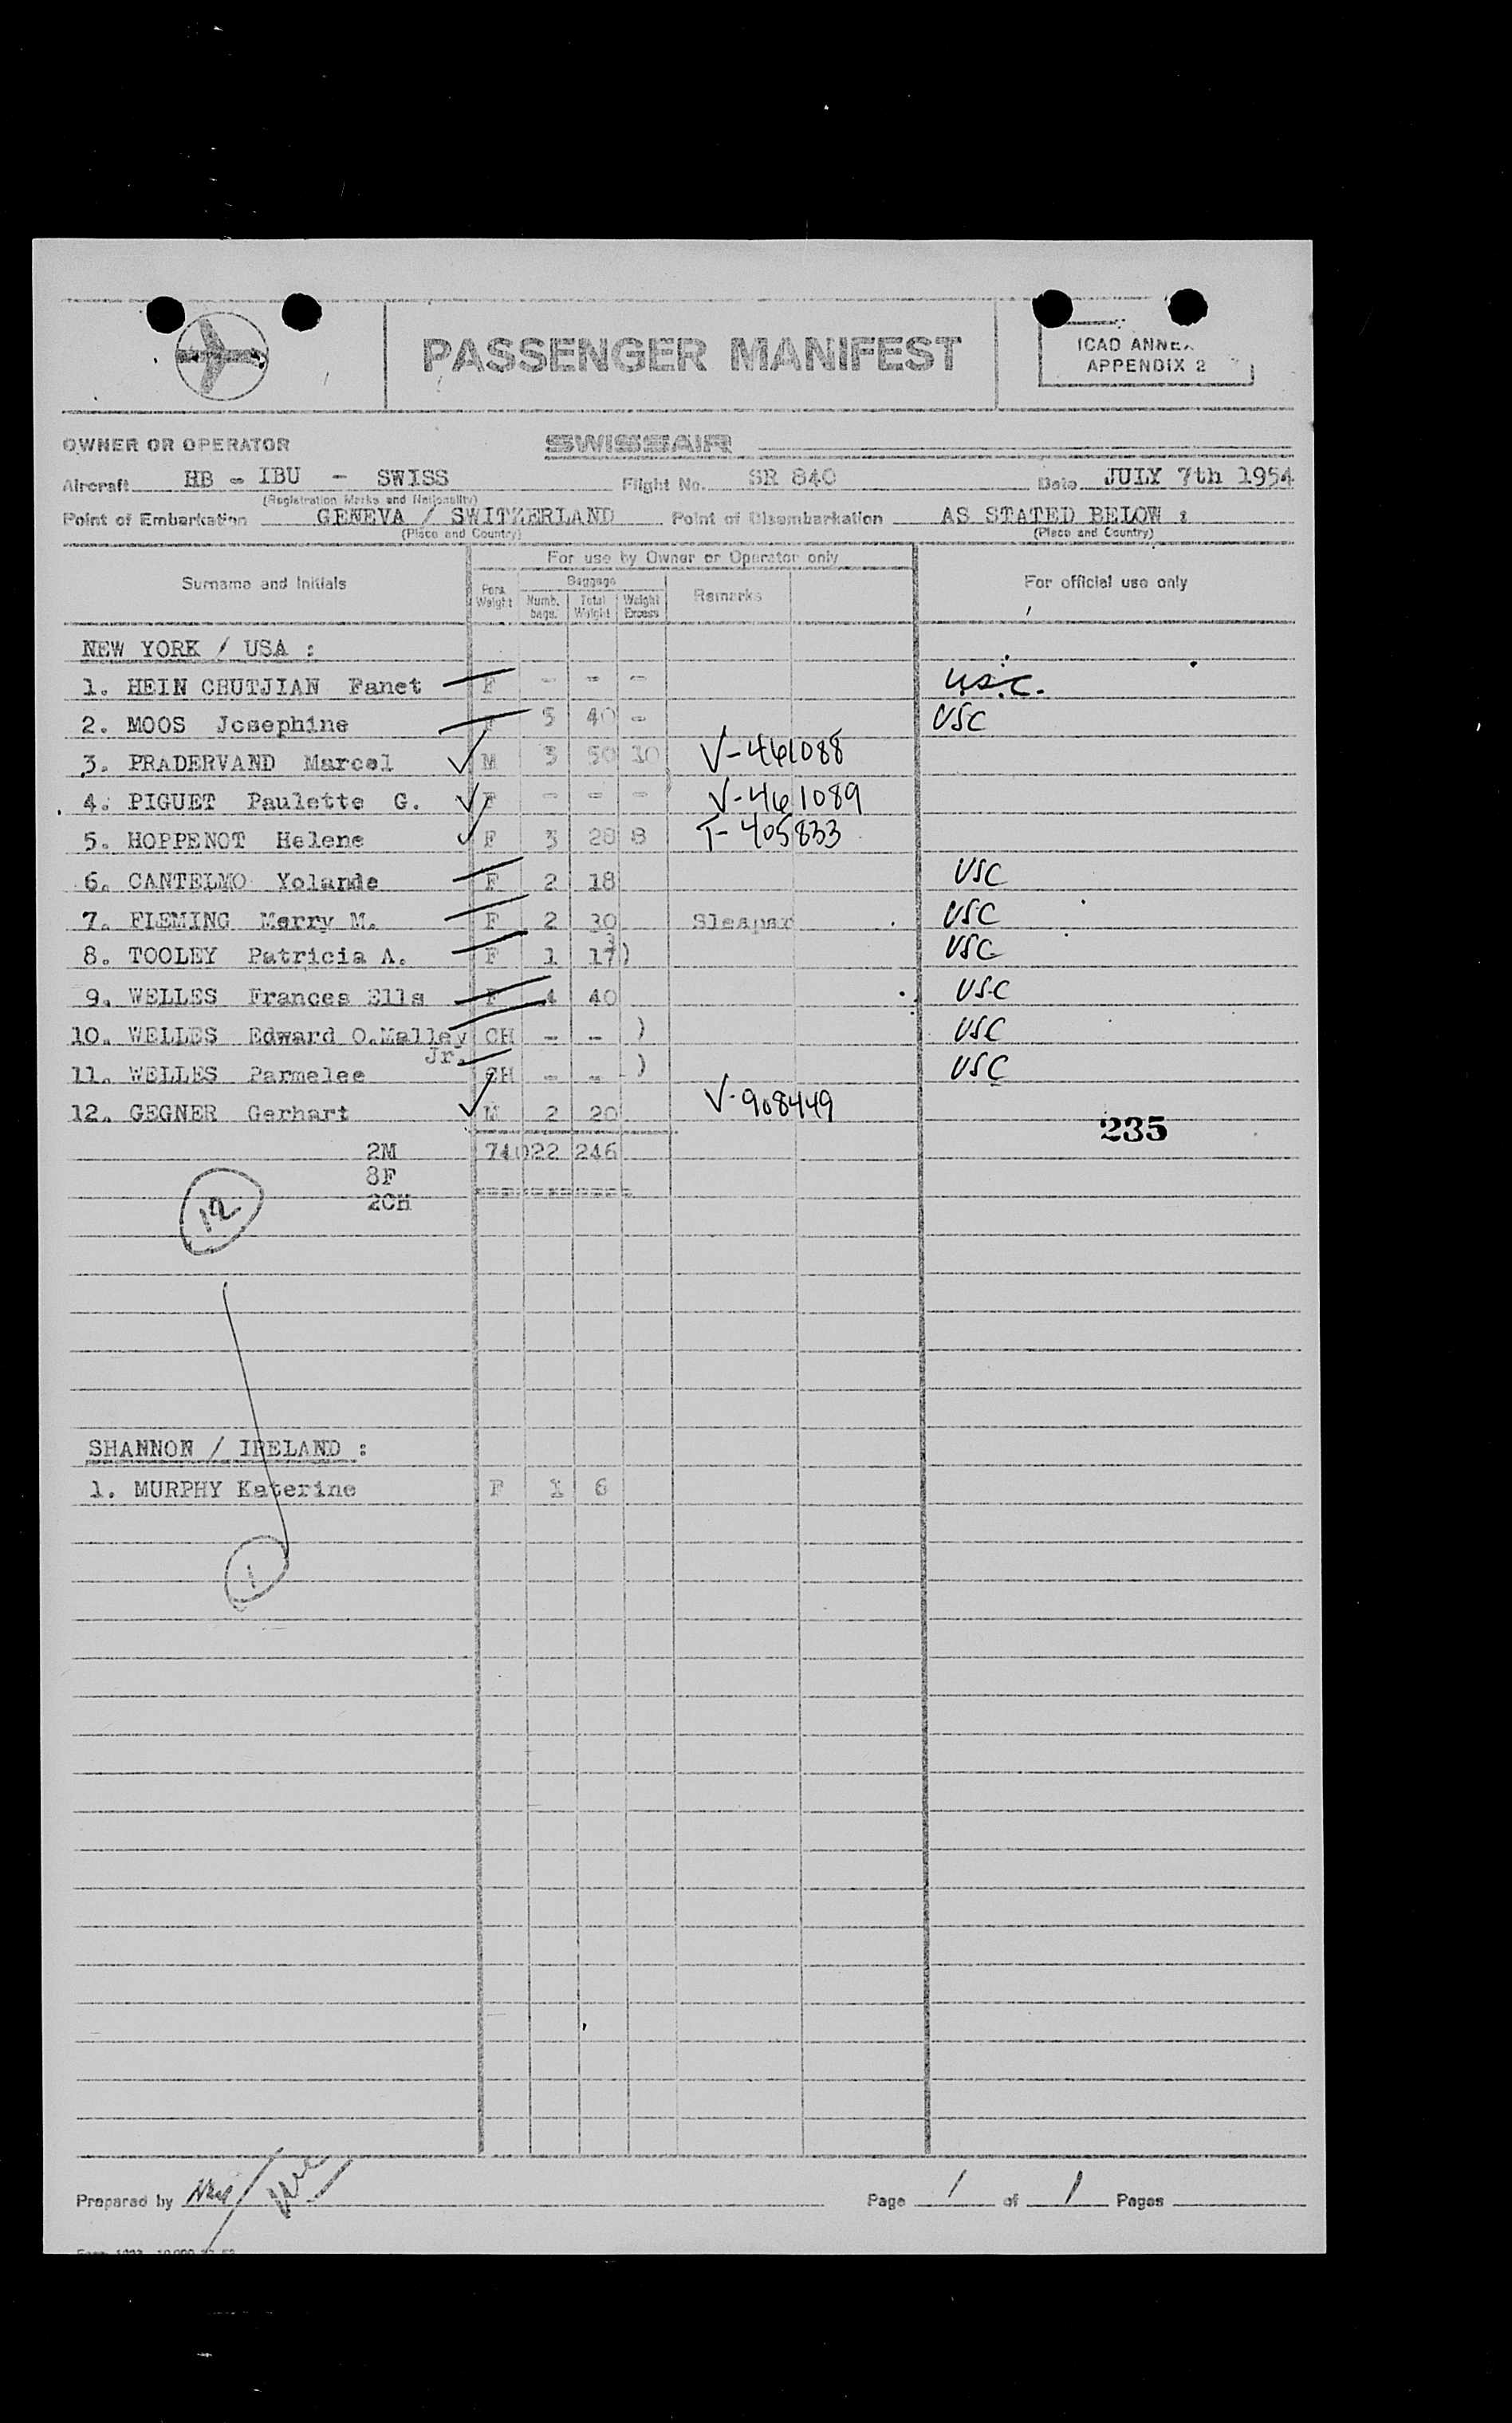 PASSENGER MANIFEST
ICAO ANNEX
APPENDIX 2
OWNER OR OPERATOR SWISSAIR
Aircraft HB - IBU - SWISS Flight No. SR 840 Date JULY 7th 1954
(Registration Marks and Nationality)
Point of Embarkation GENEVA / SWITZERLAND Point of Disembarkation AS STATED BELOW :
(Place and Country) (Place and Country)
For use by Owner or Operator only
Surname and Initials Pers. Weight Baggage Remarks For official use only
Numb. bags. Total Weight Weight Excess
NEW YORK / USA :
1. HEIN CHUTJIAN Fanet F - - - U.S.C.
2. MOOS Josephine F 5 40 - USC
3. PRADERVAND Marcel M 3 50 10 V-461088
4. PIGUET Paulette G. F - - - V-461089
5. HOPPENOT Helene F 3 28 8 T-405833
6. CANTELMO Yolande F 2 18 USC
7. FLEMING Merry M. F 2 30 Sleeper USC
8. TOOLEY Patricia A. F 1 17 ) USC
9. WELLES Frances Ells F 4 40 USC
10. WELLES Edward O.Malley CH - - ) USC
Jr.
11. WELLES Parmelee CH - - ) USC
12. GEGNER Gerhart M 2 20 V-908449
235
2M 740 22 246
8F
2CH
12
SHANNON / IRELAND :
1. MURPHY Katerine F 1 6
1
Prepared by Page 1 of 1 Pages